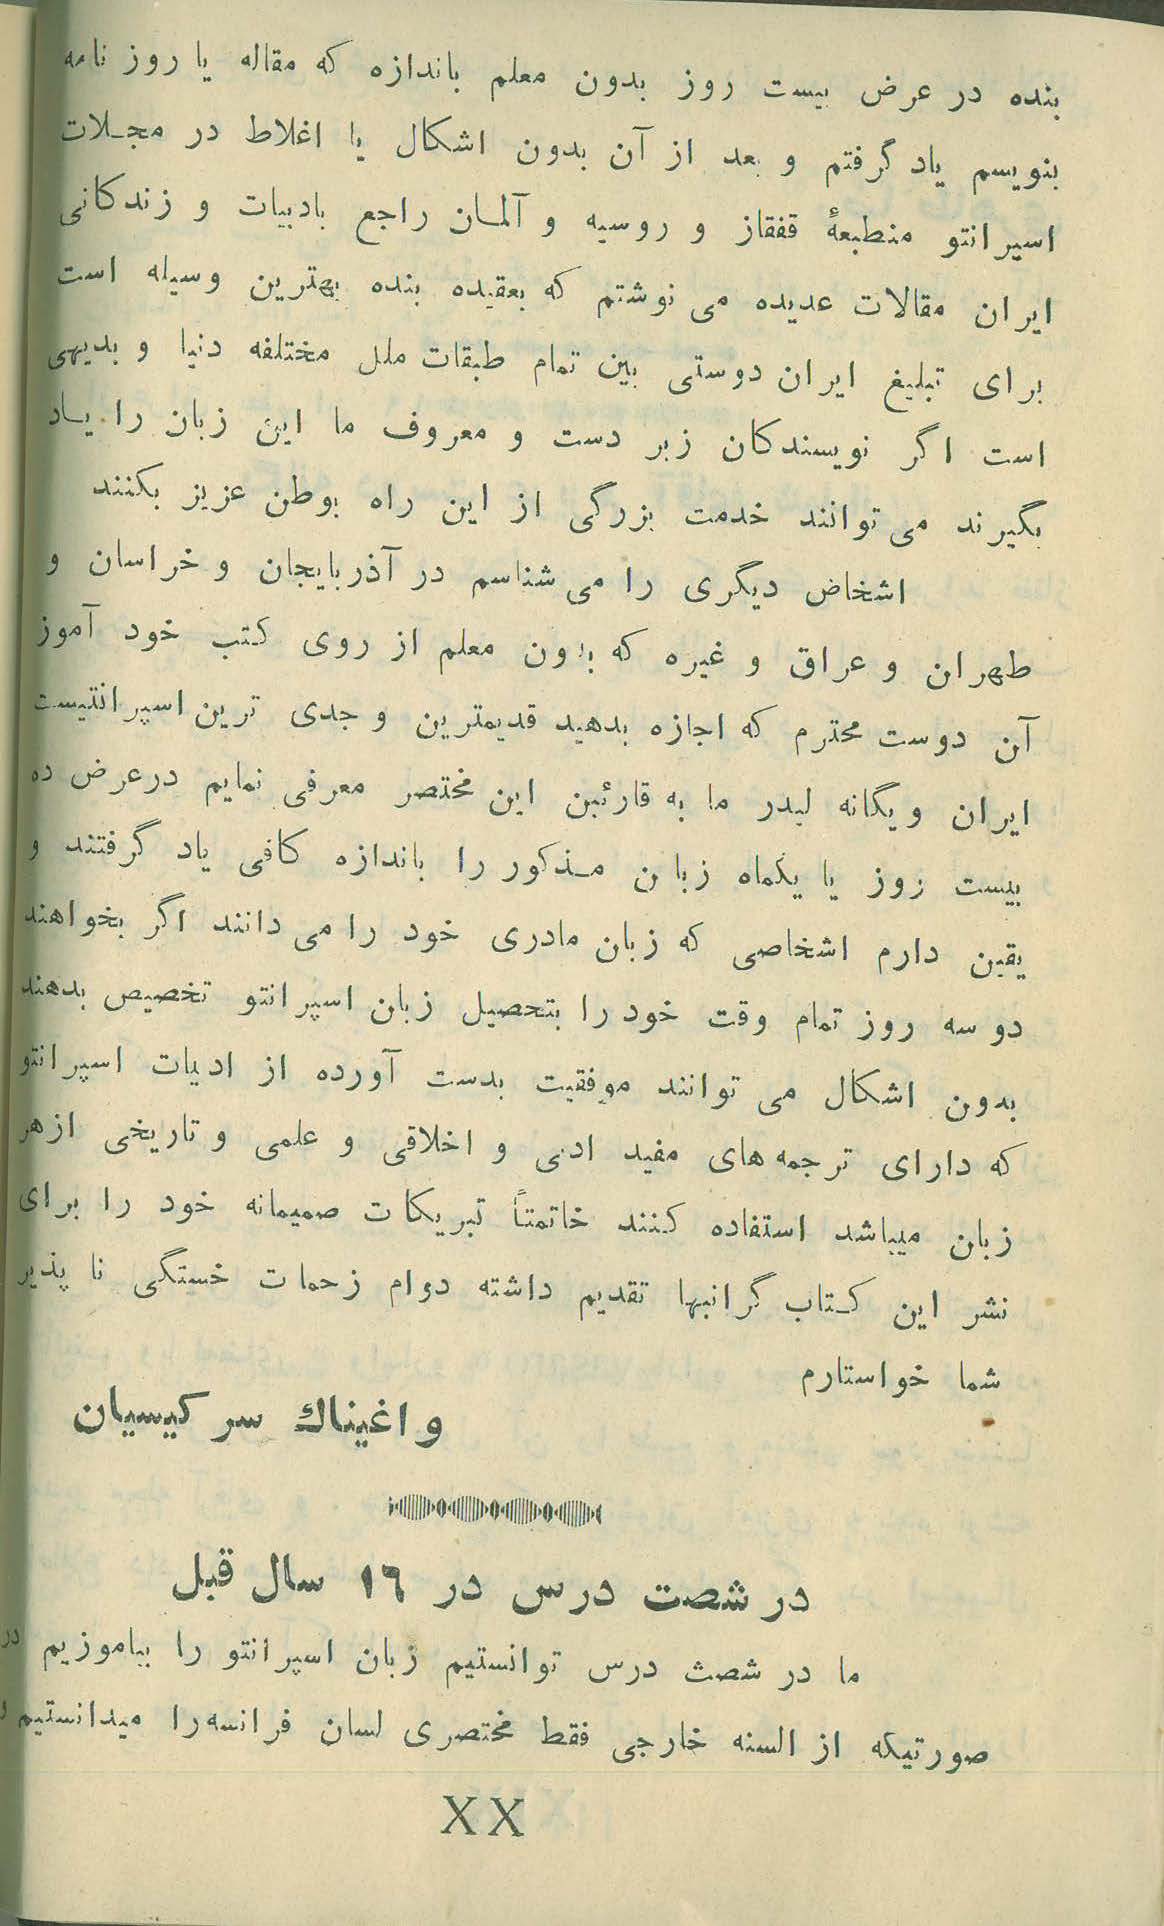 بنده در عرض بیست روز بدون معلم باندازه که مقاله یا روز نامه
بنویسم یاد گرفتم و بعد از آن بدون اشکال یا اغلاط در مجلات
اسپرانتو منطبعهٔ قفقاز و روسیه و آلمان راجع بادبیات و زندکانی
ایران مقالات عدیده می نوشتم که بعقیده بنده بهترین وسیله است
برای تبلیغ ایران دوستی بین تمام طبقات ملل مختلفه دنیا و بدیهی
است اگر نویسندکان زبر دست و معروف ما این زبان را یاد
بگیرند می توانند خدمت بزرگی از این راه بوطن عزیز بکنند
اشخاض دیگری را می شناسم در آذربایجان و خراسان و
طهران و عراق و غیره که بدون معلم از روی کتب خود آموز
آن دوست محترم که اجازه بدهید قدیمترین و جدی ترین اسپرانتیست
ایران ویگانه لیدر ما به قارئین این مختصر معرفی نمایم درعرض ده
بیست روز یا یکماه زبان مذکور را باندازه کافی یاد گرفتند و
یقین دارم اشخاصی که زبان مادری خود را می دانند اگر بخواهند
دو سه روز تمام وقت خود را بتحصیل زبان اسپرانتو تخصیص بدهند
بدون اشکال می توانند موفقیت بدست آورده از ادبیات اسپرانتو
که دارای ترجمه های مفید ادبی و اخلاقی و علمی و تاریخی ازهر
زبان میباشد استفاده کنند خاتمتاً تبریکات صمیمانه خود را برای
نشر این کتاب گرانبها تقدیم داشته دوام زحمات خستگی نا پذیر
شما خواستارم
واغیناك سرکیسیان
در شصت درس در ١٦ سال قبل
ما در شصث درس توانستیم زبان اسپرانتو را بیاموزیم در
صورتیکه از السنه خارجی فقط مختصری لسان فرانسه را میدانستیم و
XX